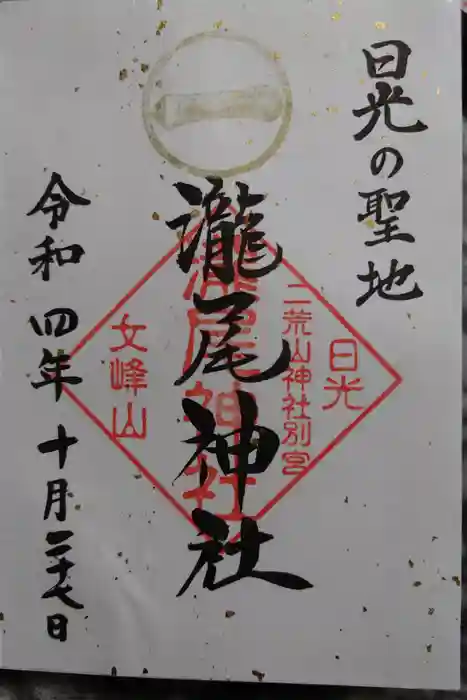 日光の聖地
日光
二荒山神社別宮
瀧尾神社
瀧尾神社
女峰山
令和四年十月二十七日